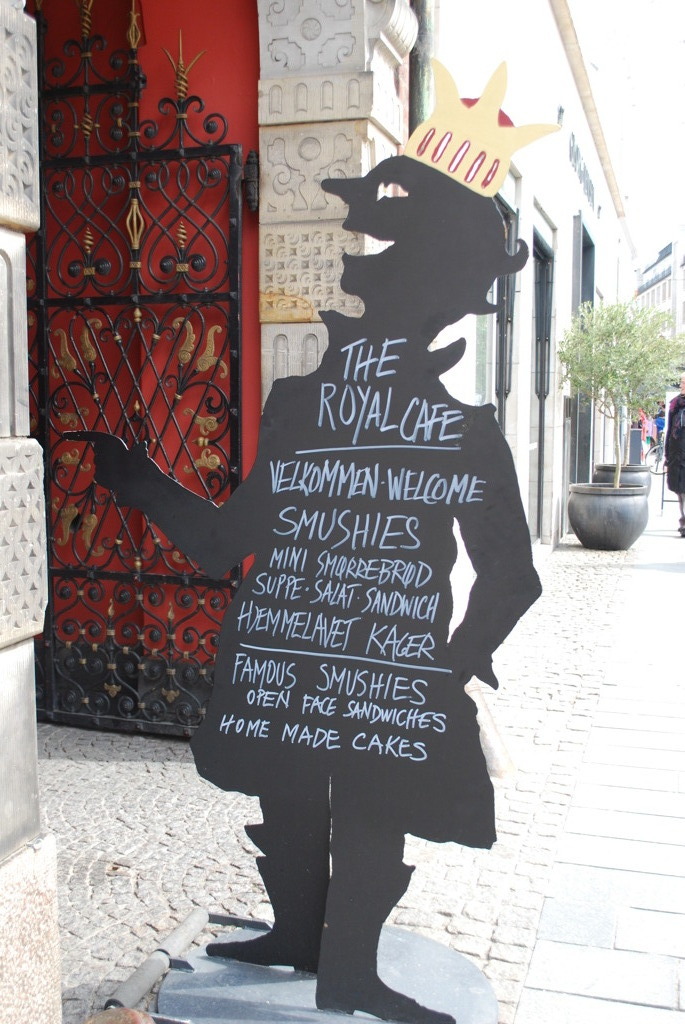 THE
ROYAL CAFE
VELKOMMEN·WELCOME
SMUSHIES
MINI SMØRREBRØD
SUPPE·SALAT·SANDWICH
HJEMMELAVET KAGER
FAMOUS SMUSHIES
OPEN FACE SANDWICHES
HOME MADE CAKES